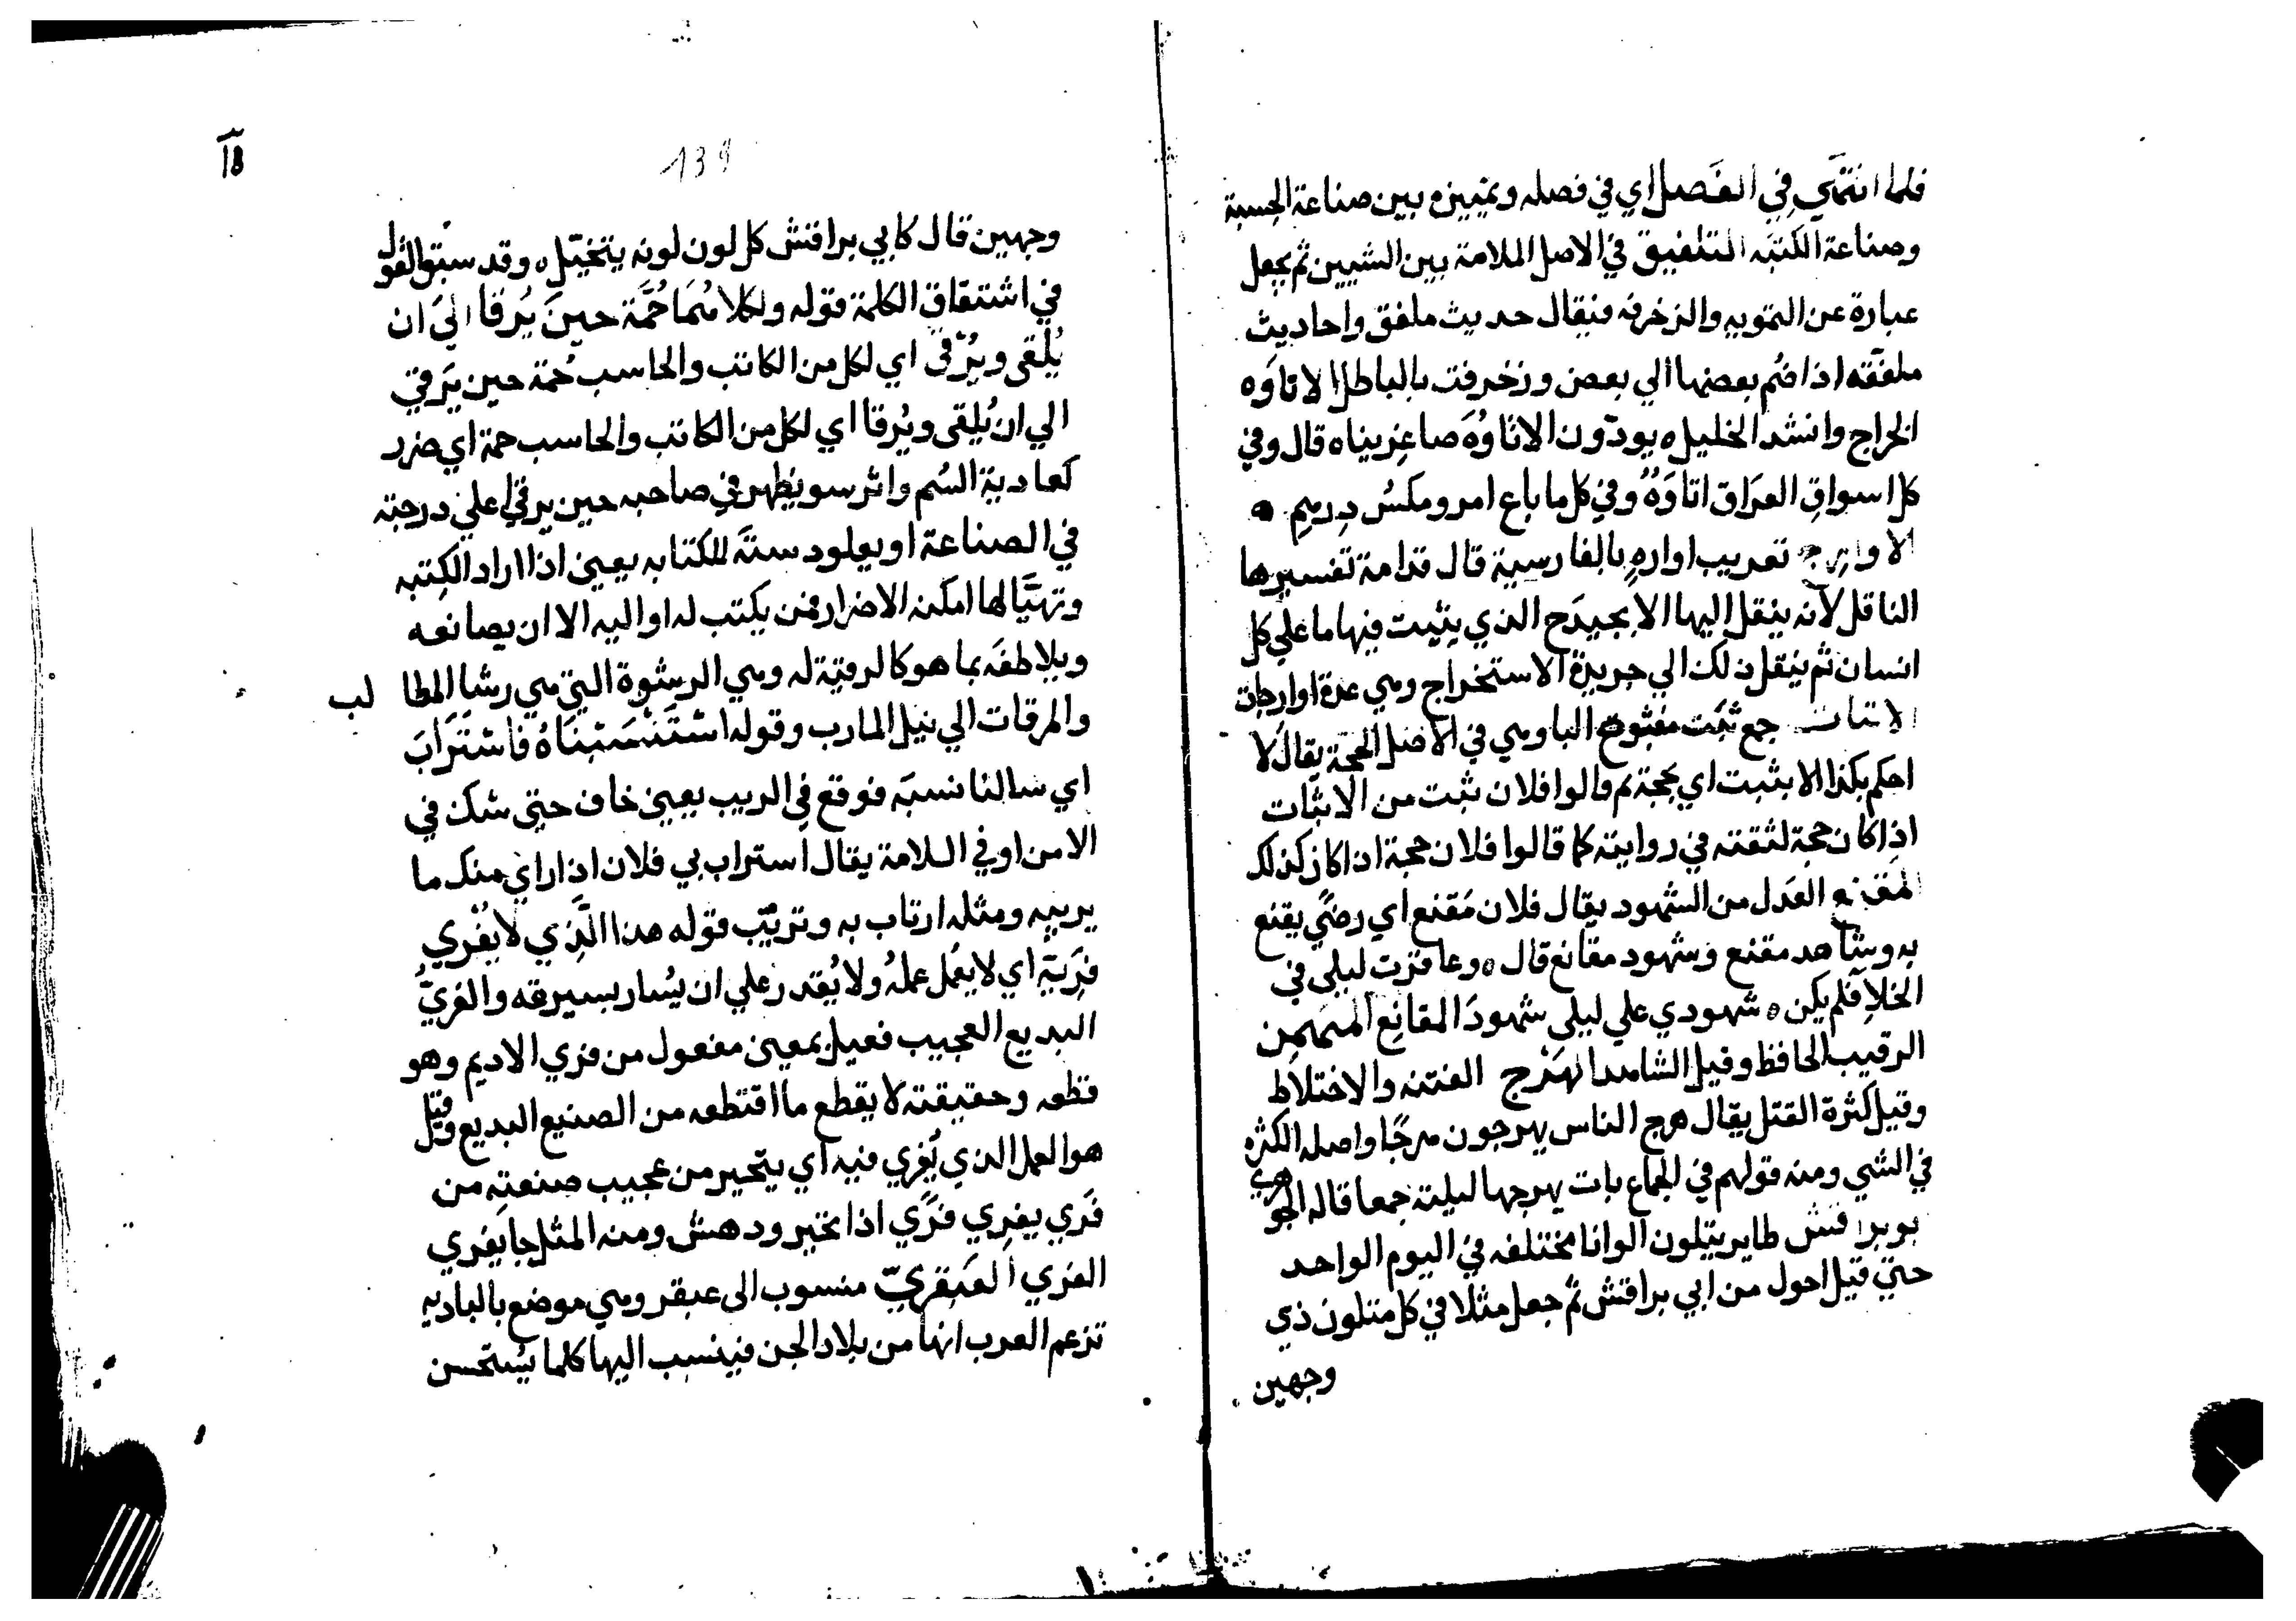 فلما انتهي في الفصل اي في فصله وتمييزه بين صناعة الحسبة
وصناعة الكتبه التلفيق في الاصل الملامة بين الشيين ثم يجعل
عبارة عن التمويه والزخرفه فيقال حديث ملفق واحاديث
ملفقه اذا ضم بعضها الي بعض وزخرفت بالباطل الاتاوه
الخراج وانشد الخليل ه يودّون الاتاوُهَ صاغرينا ه قال وفي
كل اسواقِ العرَاق اتاوَةٌ وفي كل ما باع امر ومكسُ درهم ه
الاوارج تعريب اواره بالفارسية قال قدامة تفسيرها
الناقل لانه ينقل اليها الابجيدح الذي يثبت فيها ما علي كل
انسان ثم ينقل ذلك الي جريدة الاستخراج وهي عدة اوارجات
الاثبات جمع ثبت مفتوح البا وهي في الاصل الحجة يقال لا
احكم بكذا الا بثبت اي بحجة ثم قالوا فلان ثبت من الاثبات
اذا كان حجة لثقته في روايته كما قالوا فلان حجة اذا كان كذلك
المقنع العدل من الشهود يقال فلان مَقنع اي رضيً يقنع
به وشاهد مقنع وشهود مقانع قال ه وعاقرت ليلى في
الخلا فلم يكن ه شهودي علي ليلى شهودَ المقانِع المهيمن
الرقيب الحافظ وقيل الشاهد الهَرْج الفتنه والاختلاط
وقيل كثرة القتل يقال هرج الناس يهرجون هرجًا واصله الكثره
في الشي ومنه قولهم في الجماع بات يهرجها ليلته جمعا قاله الجوهري
بو براقش طاير يتلون الوانا مختلفه في اليوم الواحد
حتي قيل احول من ابي براقش ثم جعل مثلا في كل متلون ذي
وجهين
18
139
وجهين قال كابي براقش كل لون لونه يتخيّل ه وقد سبق القول
في اشتقاق الكلمة قوله ولكلا منهما حُمَة حينَ يَرقا الىَ ان
يُلقى ويُرْقىَ اي لكل من الكاتب والحاسب حُمة حين يَرقي
الي ان يُلقى ويُرقا اي لكل من الكاتب والحاسب حمة اي ضرر
كعادية السُم واثر سو يظهر في صاحبه حين يرقي اعلي درجته
في الصناعة او يعلو دستَه للكتابه يعني اذا اراد الكتبه
وتهيَّا لها امكنه الاضرار فمن يكتب له او اليه الا ان يصانعه
ويلاطفَه بما هو كالرقية له وهي الرشوة التي هي رشا المطالب
والمرقات الي نيل المارب وقوله اسْتَنْسَبْنَاهُ فَاسْتَرَابَ
اي سالنا نسبَه فوقع في الريب يعني خاف حتى شك في
الامن او في اللامة يقال استراب بي فلان اذا راي منك ما
يريبه ومثله ارتاب به وتريّب قوله هذا الَّذِي لا يُفْرَي
فَرِيّه اي لا يعُمل عملهُ ولا يُقدر علي ان يُسار بسيرته والفريُّ
البديع العجيب فعيل بمعنى مفعول من فري الاديم وهو
قطعه وحقيقته لا يقطع ما اقتطعه من الصنيع البديع وقيل
هو العمل الذي يُفري فيه اي يتحير من عجيب صنعتِه من
فَرَي يفرِي فرَي اذا تحير ودهش ومنه المثل جا يفري
الفري العَبْقَريّ منسوب الى عبقر وهي موضع بالباديه
تزعم العرب انها من بلاد الجن فينسب اليها كلما يُستحسن